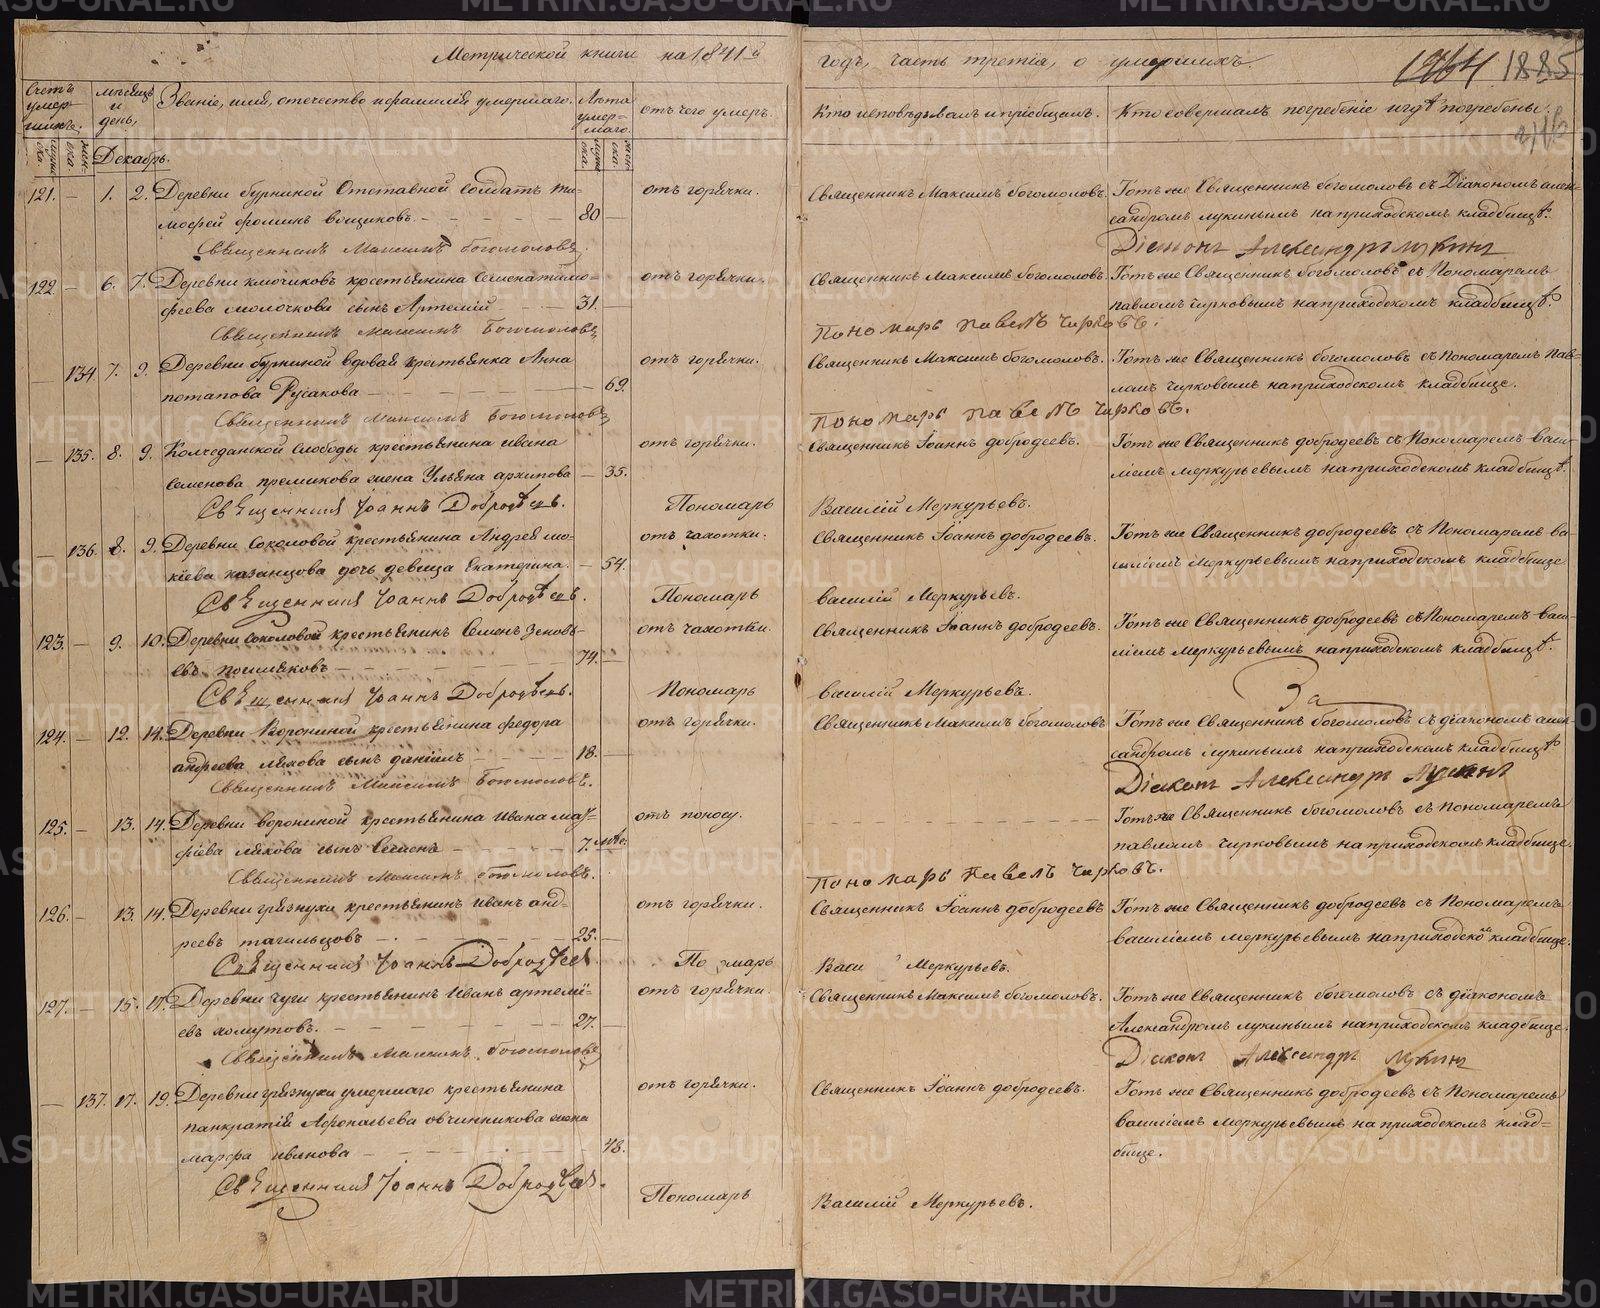 Метрической книги на 1841й годъ, часть третія, о умершихъ.
1885
Счетъ умершихъ.
мужеска.
женска.
мѣсяцъ и день,
Званіе, имя, отечество и фамилія умершаго.
Лѣта умершаго.
мужеска.
женска.
отъ чего умеръ.
Кто исповѣдывалъ и пріобщалъ.
Кто совершалъ погребеніе и гдѣ погребены.
Декабрь.
121. — 1. 2. Деревни бурниной Отставной солдатъ Ти- отъ горячки. Священникъ Максимъ богомоловъ. Тотъ же Священникъ богомоловъ съ Діакономъ алек-
мофей фоминъ вощиковъ. 80 — сандромъ лукинымъ на приходскомъ кладбищѣ.
Священникъ Максимъ богомоловъ. Діаконъ Александръ лукинъ
122 — 6. 7. Деревни ключиковъ крестьянина Семена тимо- отъ горячки. Священникъ Максимъ богомоловъ. Тотъ же Священникъ богомоловъ съ Пономаремъ
феева молочкова сынъ Артемій 31. — павломъ чирковымъ на приходскомъ кладбищѣ.
Священникъ Максимъ Богомоловъ Пономарь павелъ чирковъ.
— 134. 7. 9. Деревни бурниной вдовая крестьянка Анна отъ горячки. Священникъ Максимъ богомоловъ. Тотъ же Священникъ богомоловъ съ Пономаремъ Пав-
потапова Русакова — 69. ломъ чирковымъ на приходскомъ кладбище.
Священникъ Максимъ Богомоловъ Пономарь павелъ чирковъ.
— 135. 8. 9. Колчеданской Слободы крестьянина ивана отъ горячки. Священникъ Іоаннъ добродеевъ. Тотъ же Священникъ добродеевъ съ Пономаремъ васи-
Семенова премикова жена Ульяна архипова — 35. ліемъ меркурьевымъ на приходскомъ кладбищѣ.
Священникъ Іоаннъ Добродѣевъ. Пономарь Василій Меркурьевъ.
— 136. 8. 9. Деревни Соколовой крестьянина Андрея мо- отъ чахотки. Священникъ Іоаннъ добродеевъ. Тотъ же Священникъ добродеевъ съ Пономаремъ ва-
кіева казанцова дочь девица Екатерина. — 54. силіемъ меркурьевымъ на приходскомъ кладбище
Священникъ Іоаннъ Добродѣевъ. Пономарь василій Меркурьевъ.
123. — 9. 10. Деревни соколовой крестьянинъ Семенъ Зеновь- отъ чахотки. Священникъ Іоаннъ добродеевъ. Тотъ же Священникъ добродеевъ съ Пономаремъ васи-
евъ 74. — ліемъ меркурьевымъ на приходскомъ кладбищѣ.
Священникъ Іоаннъ Добродѣевъ. Пономарь василій Меркурьевъ. За
124. — 12. 14. Деревни Ворониной крестьянина федора отъ горячки. Священникъ Максимъ богомоловъ Тотъ же Священникъ богомоловъ съ діакономъ алек-
андреева ляхова сынъ даніилъ 18. — сандромъ лукинымъ на приходскомъ кладбищѣ
Священникъ Максимъ Богомоловъ. Діаконъ Александръ Лукинъ
125. — 13. 14. Деревни ворониной крестьянина Ивана мат- отъ поносу. Тотъ же Священникъ богомоловъ съ пономаремъ
фіева ляхова сынъ Семенъ — 7. павломъ чирковымъ на приходскомъ кладбище.
Священникъ Максимъ богомоловъ. Пономарь Павелъ чирковъ.
126. — 13. 14. Деревни грязнухи крестьянинъ иванъ анд- отъ горячки. Священникъ Іоаннъ добродеевъ Тотъ же Священникъ добродеевъ съ Пономаремъ
реевъ тагильцовъ — 25. — василіемъ меркурьевымъ на приходскомъ кладбище.
Священникъ Іоаннъ Добродѣевъ По марь Васи Меркурьевъ.
127. — 15. 17. Деревни чуги крестьянинъ Иванъ артемі- отъ горячки. Священникъ Максимъ богомоловъ. Тотъ же Священникъ богомоловъ съ діакономъ
евъ хомутовъ. — 27. — Александромъ лукинымъ на приходскомъ кладбище.
Священникъ Максимъ богомоловъ Діаконъ Александръ лукинъ
— 137. 17. 19. Деревни грязнухи умершаго крестьянина отъ горячки. Священникъ Іоаннъ добродеевъ. Тотъ же Священникъ добродеевъ съ Пономаремъ
панкратія Афонасьева овчинникова жена василіемъ меркурьевымъ на приходскомъ клад-
марфа иванова — 48. бище.
Священникъ Іоаннъ Добродѣевъ. Пономарь Василій Меркурьевъ.
METRIKI.GASO-URAL.RU